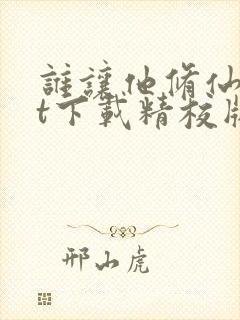 誰讓他脩仙
t下載精校版
邢山虎